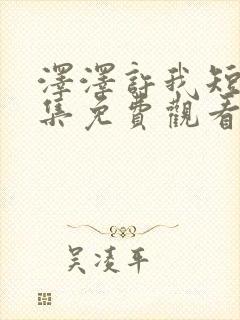 澤澤許我短
集免費觀看
吴凌平